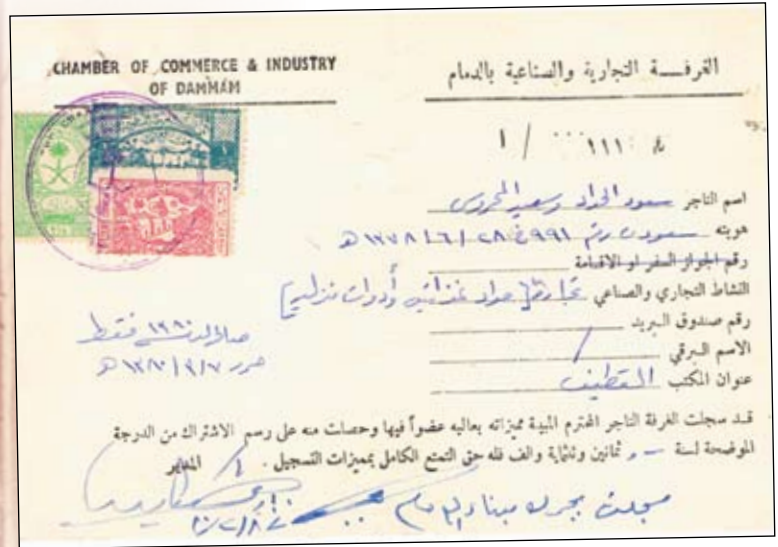 CHAMBER OF COMMERCE & INDUSTRY
OF DAMMAM
الغرفة التجارية والصناعية بالدمام
اسم التاجر سعود الحداد وسعيد المحروس
هويته سعودي رقم ٩٩١ في ٢٨/٦/١٣٧٨ هـ
رقم الجواز السفر او الاقامة
النشاط التجاري والصناعي تجارة [مواد غذائية وأدوات منزلية]
رقم صندوق البريد
الاسم البرقي
عنوان المكتب القطيف
صالح لسنة ١٣٨٠ فقط
حرر ١٣٨٠/٢/٧ هـ
قد سجلت الغرفة التاجر المحترم المبينة مميزاته بعاليه عضواً فيها وحصلت منه على رسم الاشتراك من الدرجة
الموضحة لسنة ثمانين وثلثماية والف فله حق التمتع الكامل بمميزات التسجيل . المدير
سجلت بجمرك ميناء الدمام